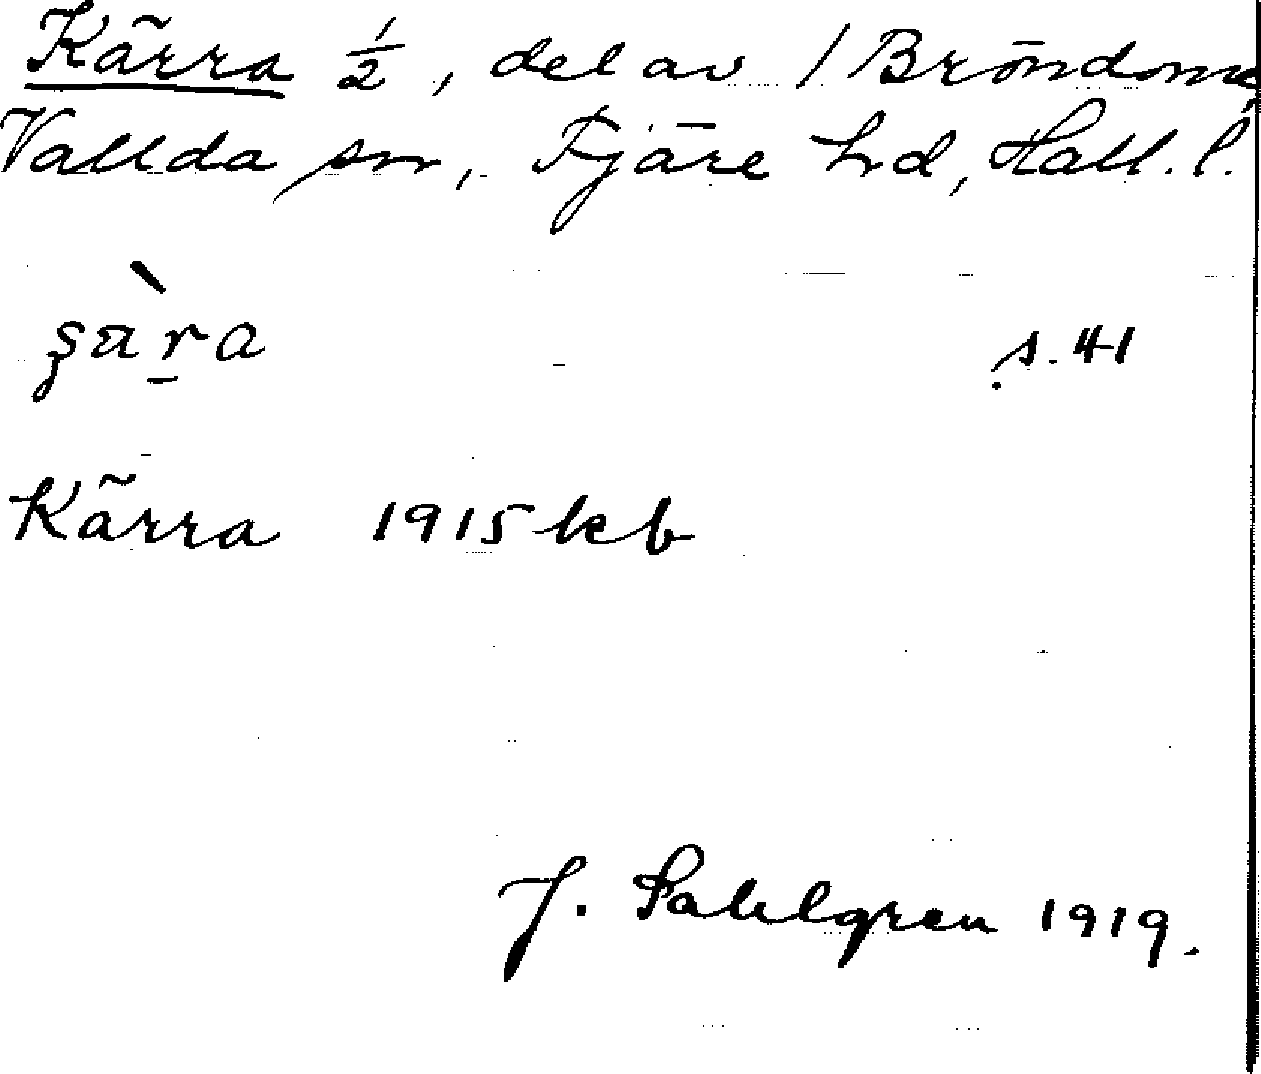 Kärra ½, del av 1 Bröndome,
Vallda sn, Fjäre hd, Hall. l.
s. 41
Kärra 1915 kb
J. Sahlgren 1919.